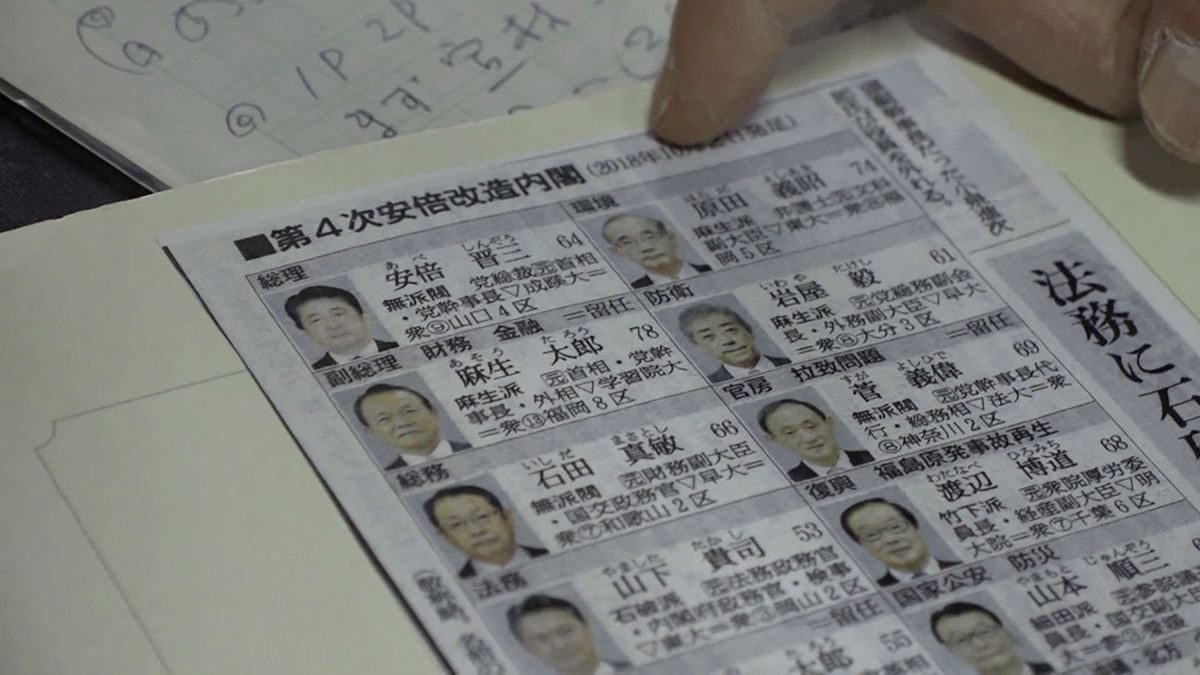 1P 2P
■第4次安倍改造内閣
総理
あべ しんぞう
安倍 晋三 64
無派閥 党総裁元首相
・党幹事長▽成蹊大＝
衆⑨山口4区
副総理 財務 金融 ＝留任
あそう たろう
麻生 太郎 78
麻生派 元首相・党幹
事長・外相▽学習院大
＝衆⑬福岡8区
総務
いしだ まさとし
石田 真敏 66
無派閥 元財務副大臣
・国交政務官▽早大＝
衆⑦和歌山2区
法務
やました たかし
山下 貴司 53
石破派 元法務政務官
・内閣府政務官・検事
▽東大＝衆③岡山2区
＝留任
太郎 55
環境
はらだ よしあき
原田 義昭 74
麻生派 弁護士元文科
副大臣▽東大＝衆⑧福
岡5区
防衛
いわや たけし
岩屋 毅 61
麻生派 元党総務副会
長・外務副大臣▽早大
＝衆⑧大分3区
官房 拉致問題 ＝留任
すが よしひで
菅 義偉 69
無派閥 元党幹事長代
行・総務相▽法大＝衆
⑧神奈川2区
復興 福島原発事故再生
わたなべ ひろみち
渡辺 博道 68
竹下派 元衆院厚労委
員長・経産副大臣▽明
大院＝衆⑦千葉6区
国家公安 防災
やまもと じゅんぞう
山本 順三
細田派 元参院議
員長・国交副大
大＝参③愛媛
法務に石